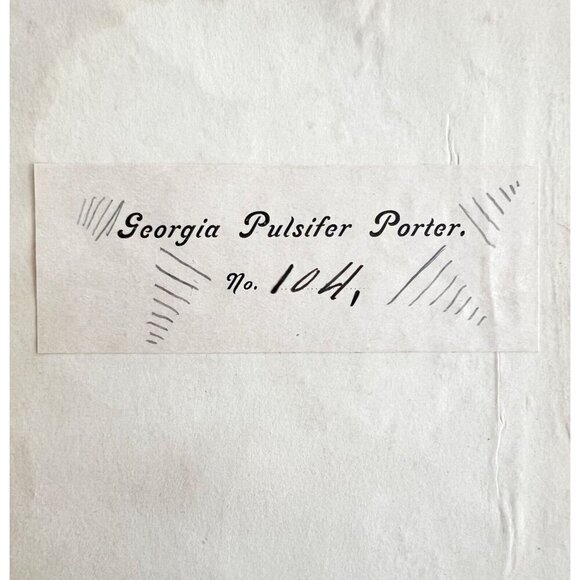 Georgia Pulsifer Porter.
No. 104,